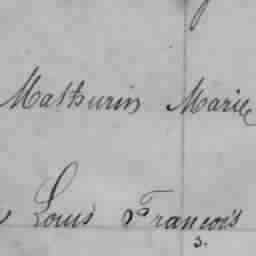 Mathurin Marie
Louis François
3.